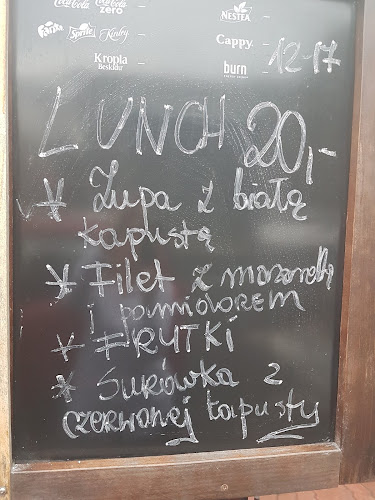 Coca-Cola Coca-Cola zero NESTEA
Fanta Sprite Kinley Cappy
Kropla Beskidu burn 12-17
LUNCH 20,-
* Zupa z białą
kapustą
* Filet z mozarellą
i pomidorem
* FRYTKI
* Surówka z
czerwonej kapusty